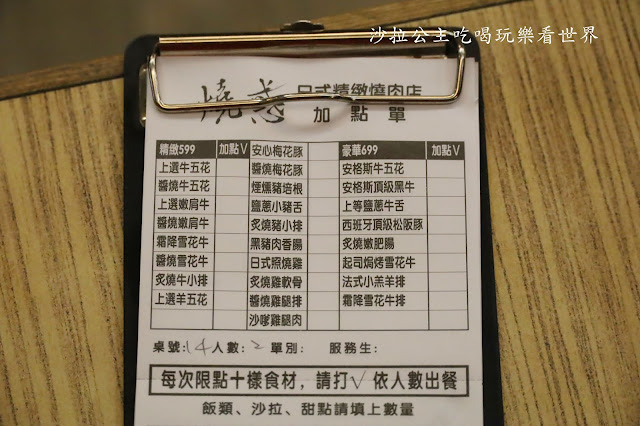 沙拉公主吃喝玩樂看世界
燒惑 日式精緻燒肉店
加點單
精緻599 加點V 安心梅花豚 豪華699 加點V
上選牛五花 醬燒梅花豚 安格斯牛五花
醬燒牛五花 煙燻豬培根 安格斯頂級黑牛
上選嫩肩牛 鹽蔥小豬舌 上等鹽蔥牛舌
醬燒嫩肩牛 炙燒豬小排 西班牙頂級松阪豚
霜降雪花牛 黑豬肉香腸 炙燒嫩肥腸
醬燒雪花牛 日式照燒雞 起司焗烤雪花牛
炙燒牛小排 炙燒雞軟骨 法式小羔羊排
上選羊五花 醬燒雞腿排 霜降雪花牛排
沙嗲雞腿肉
桌號:14 人數:2 單別: 服務生:
每次限點十樣食材，請打√依人數出餐
飯類、沙拉、甜點請填上數量